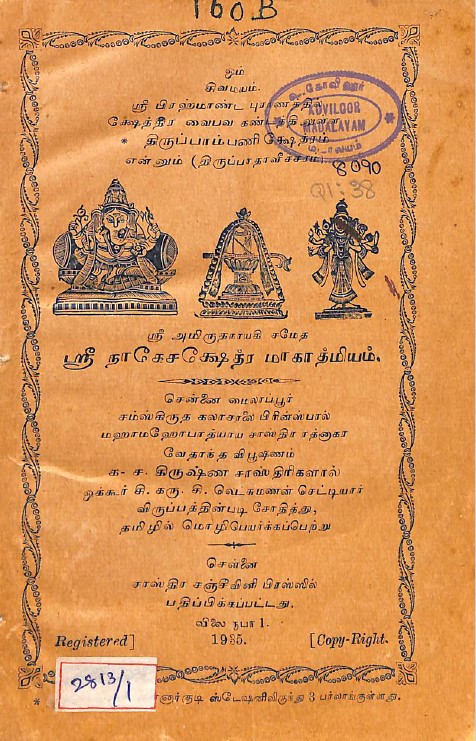 160B
ஓம்
சிவமயம்.
ஸ்ரீ பிரஹ்மாண்ட புராணத்தில்
க்ஷேத்திர வைபவ கண்டத்திலுள்ள
* திருப்பாம்பணி க்ஷேத்ரம்
என்னும் (திருப்பாதாளீச்சரம்)
கோவிலூர்
KOVILOOR
MADALAYAM
மடாலயம்
8090
Q1:38
ஸ்ரீ அமிருதநாயகி சமேத
ஸ்ரீ நாகேசக்ஷேத்ர மாகாத்மியம்.
சென்னை மைலாப்பூர்
சம்ஸ்கிருத கலாசாலை பிரின்ஸ்பால்
மஹாமஹோபாத்யாய சாஸ்திர ரத்னாகர
வேதாந்த விபூஷணம்
க. ச. கிருஷ்ண சாஸ்திரிகளால்
ஒக்கூர் சி. கரு. சி. லெட்சுமணன் செட்டியார்
விருப்பத்தின்படி சோதித்து,
தமிழில் மொழிபெயர்க்கப்பெற்று
சென்னை
சாஸ்திர சஞ்சீவினி பிரஸ்ஸில்
பதிப்பிக்கப்பட்டது.
விலை ரூபா 1.
Registered] 1935. [Copy-Right.
2813/1
* ஸ்டேஷனிலிருந்து 3 பர்லாங்குள்ளது.